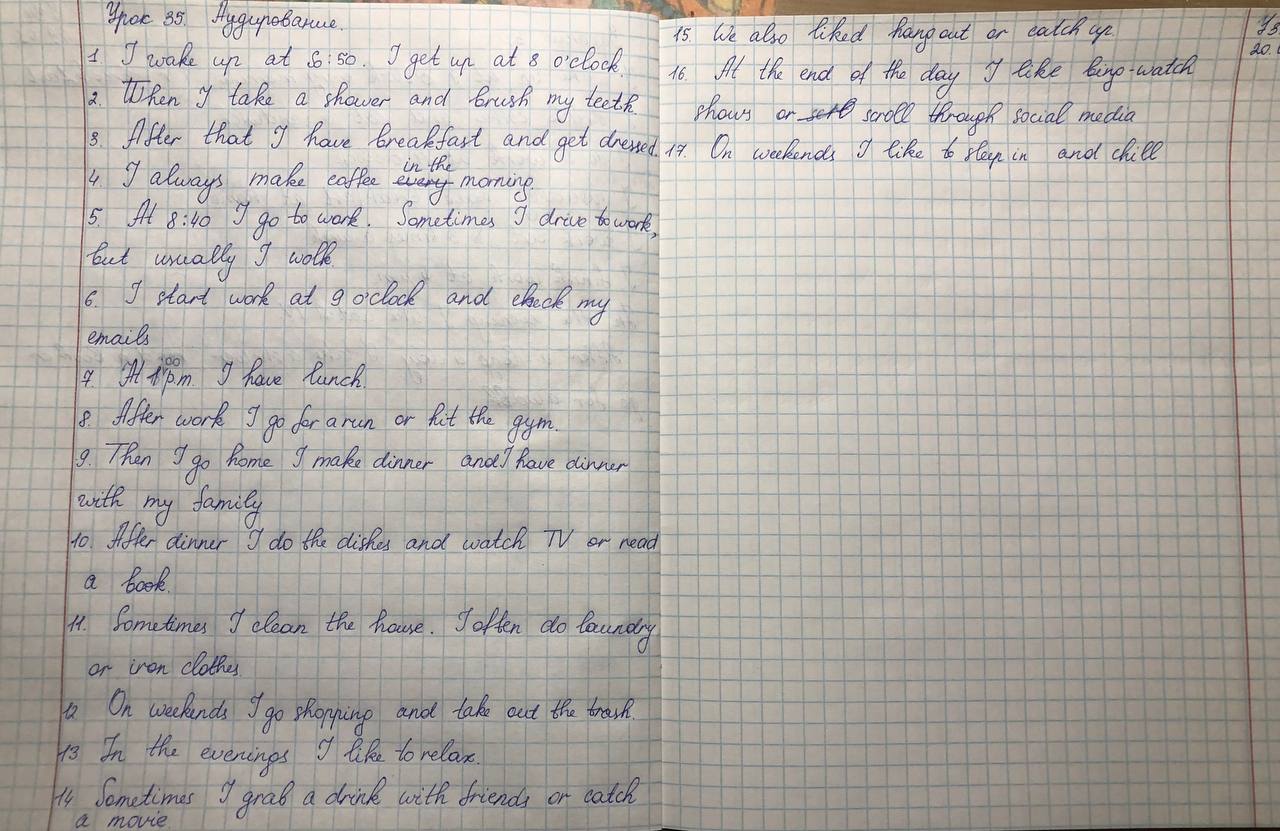 Урок 35. Аудирование.
1 I wake up at 6:50. I get up at 8 o'clock.
2. When I take a shower and brush my teeth.
3. After that I have breakfast and get dressed.
in the
4. I always make coffee every morning.
5. At 8:40 I go to work. Sometimes I drive to work,
but usually I walk.
6. I start work at 9 o'clock and check my
emails
7 At 1 00 p.m. I have lunch.
8. After work I go for a run or hit the gym.
9. Then I go home I make dinner and I have dinner
with my family
10. After dinner I do the dishes and watch TV or read
a book.
11. Sometimes I clean the house. I often do laundry
or iron clothes.
12 On weekends I go shopping and take out the trash.
13 In the evenings I like to relax.
14 Sometimes I grab a drink with friends or catch
a movie.
15. We also liked hang out or catch up.
16. At the end of the day I like bing-watch
shows or scroll through social media
17. On weekends I like to sleep in and chill